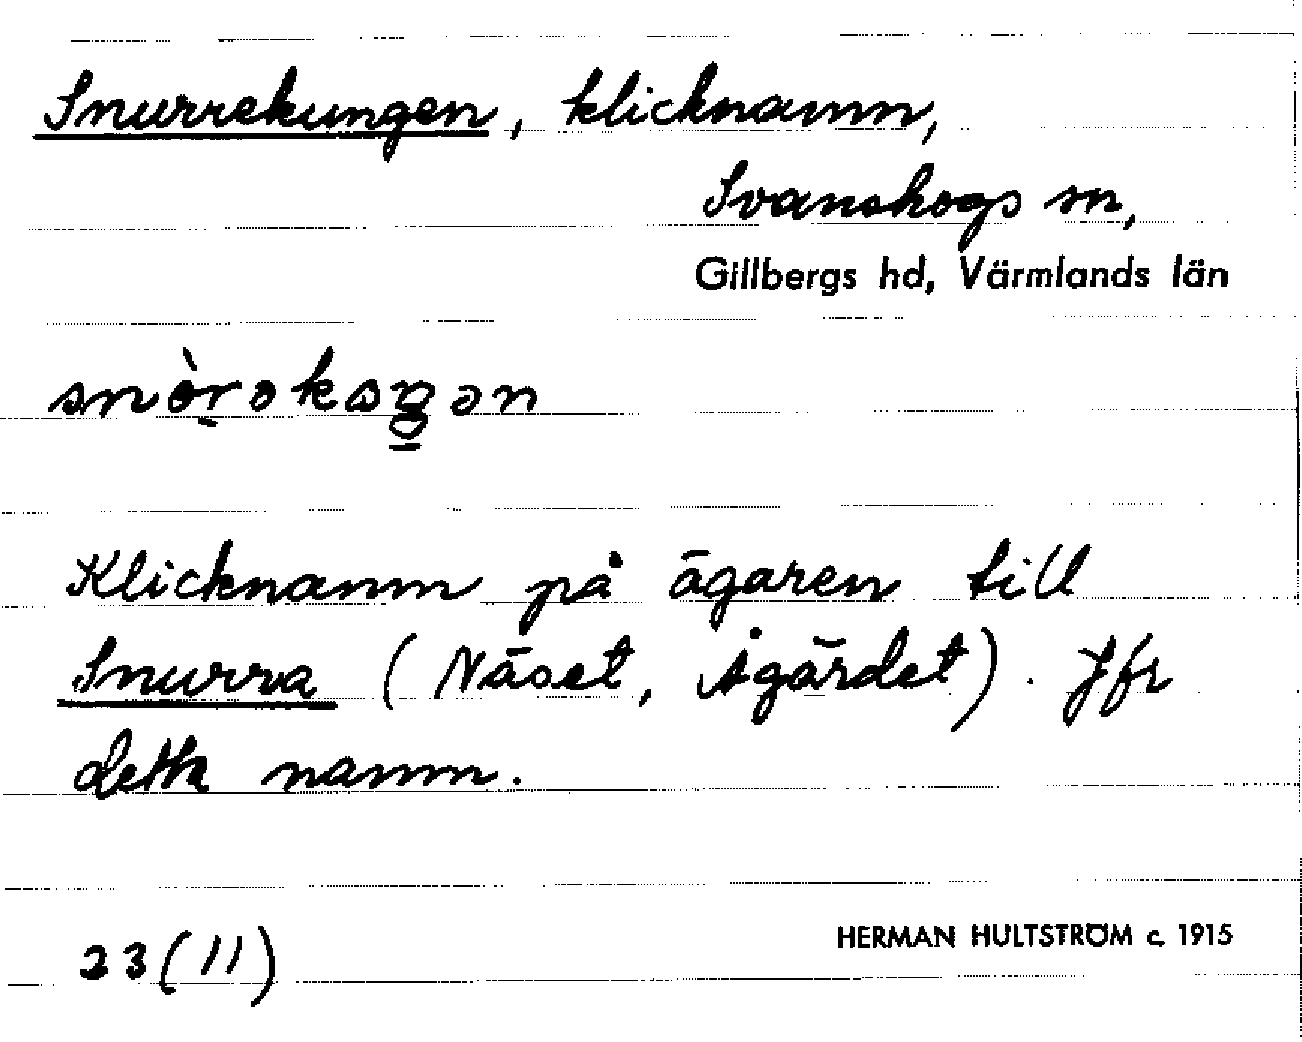 Snurrekungen, klicknamn,
Svanskogs sn,
Gillbergs hd, Värmlands län
Klicknamn på ägaren till
Snurra (Näset, Ågärdet). Jfr
detta namn.
23(11)
HERMAN HULTSTRÖM c. 1915